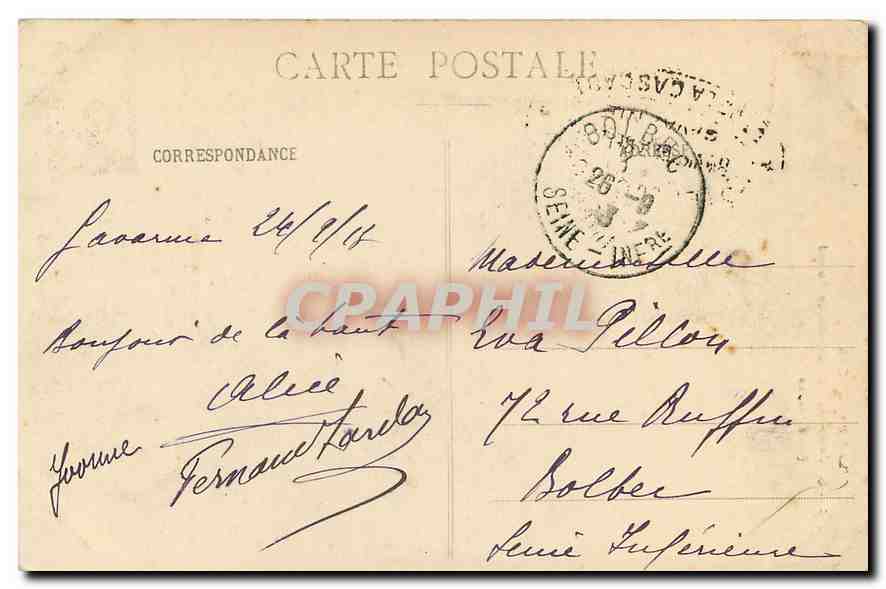 CARTE POSTALE
CORRESPONDANCE
BOLBEC
26
SEINE - INFRE
LA CASCADE
Gavarnie 24/9/18
Bonjour de là haut
Alice
Yvonne
Fernand
Mademoiselle
Eva Pillon
72 rue Ruffin
Bolbec
Seine Inférieure
CPAPHIL